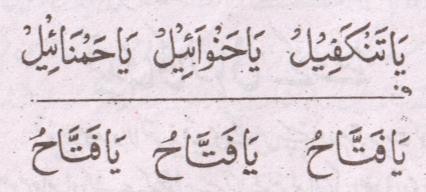 يَا تَنْكَفِيْلُ يَا حَنْوَائِيْلُ يَا حَمْنَائِيْلُ
يَا فَتَّاحُ يَا فَتَّاحُ يَا فَتَّاحُ